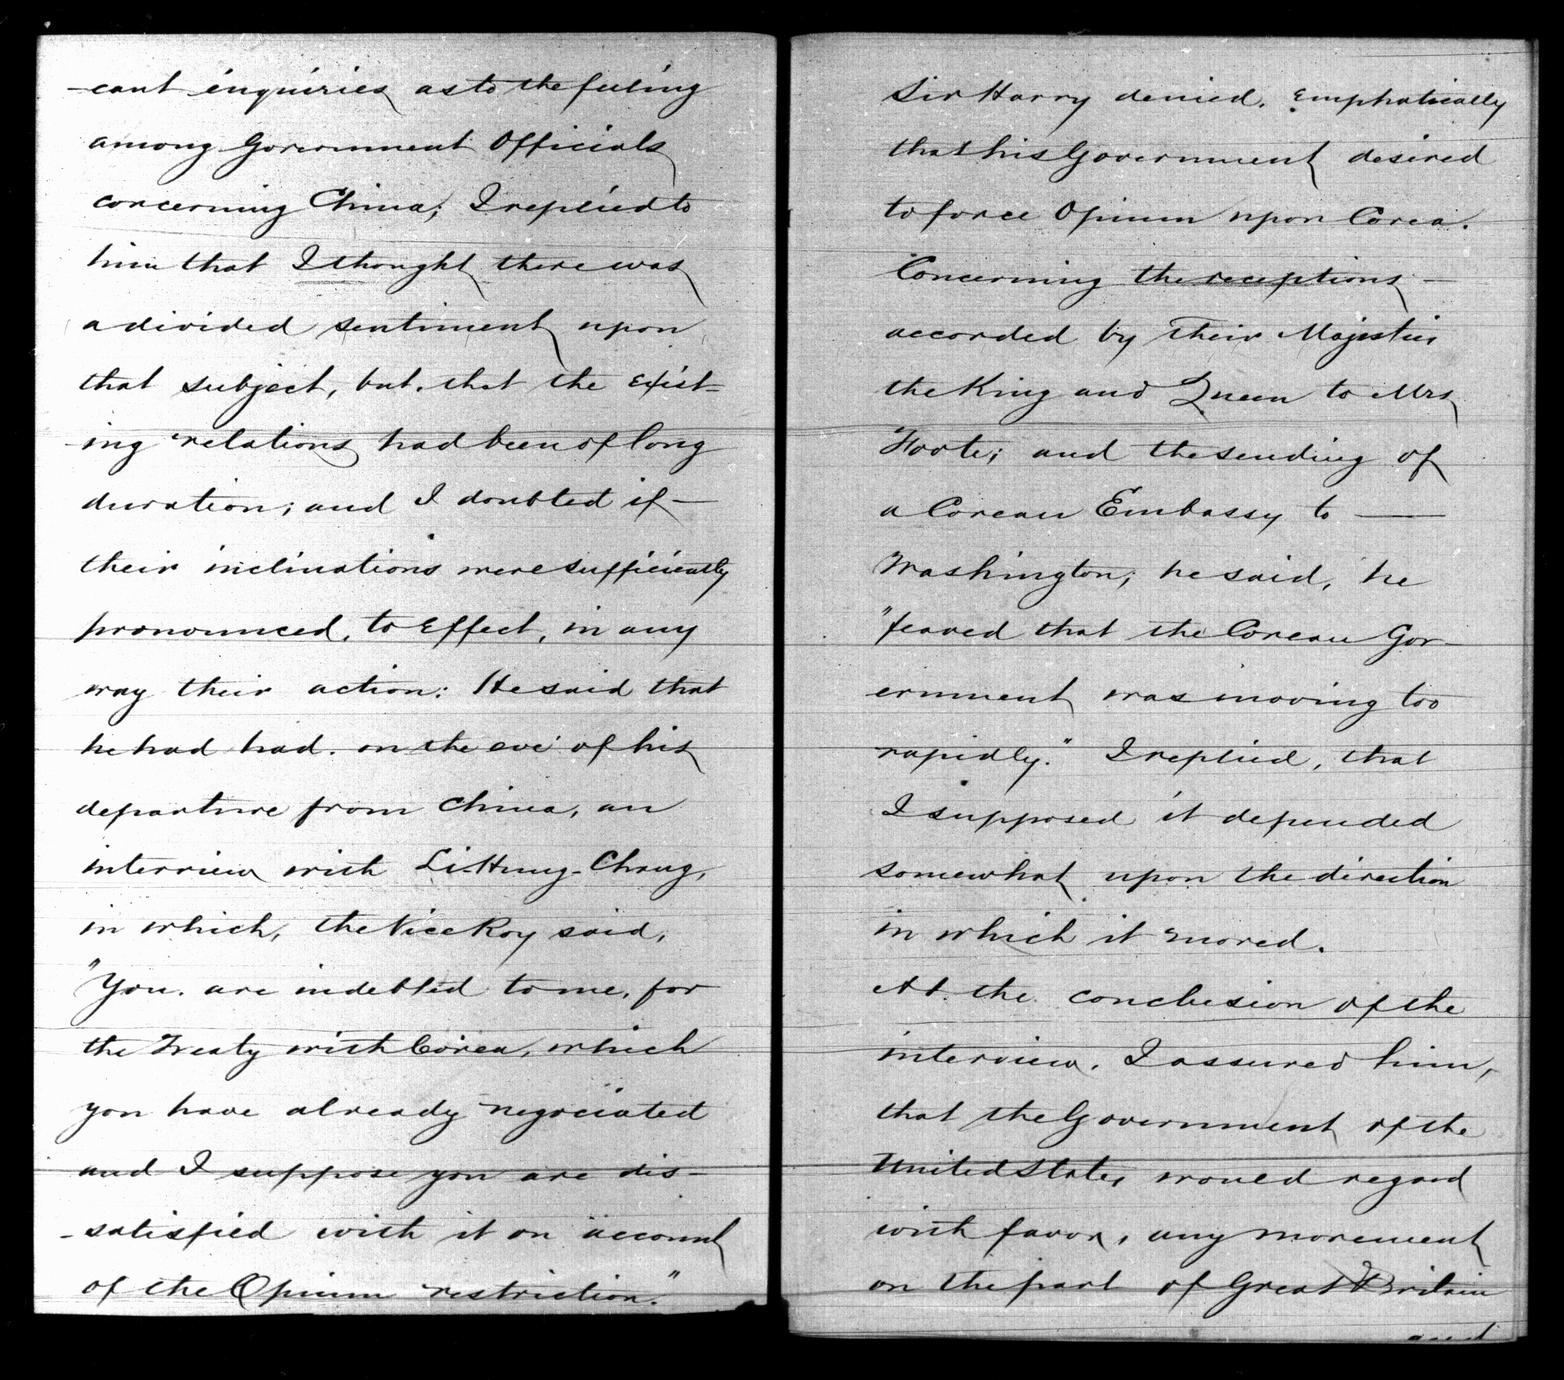 -cant inquiries as to the feeling
among Government Officials
concerning China; I replied to
him that I thought there was
a divided sentiment upon
that subject, but. that the exist=
ing relations had been of long
duration; and I doubted if—
their inclinations were sufficiently
pronounced, to Effect, in any
way their action: He said that
he had had. on the eve of his
departure from China, an
interview with Li-Hung-Chang,
in which, the Vice Roy said,
"You. are indebted to me, for
the Treaty with Corea, which
you have already negociated
and I suppose you are dis-
-satisfied with it on account
of the Opium restriction."
Sir Harry denied. Emphatically
that his Government desired
to force Opium upon Corea.
Concerning the receptions —
accorded by Their Majesties
the King and Queen to Mrs
Foote; and the sending of
a Corean Embassy to —
Washington; he said, he
"feared that the Corean Gov-
ernment was moving too
rapidly." I replied, that
I supposed it depended
somewhat upon the direction
in which it moved.
At. the conclusion of the
interview. I assured him,
that the Government of the
United States would regard
with favor, any movement
on the part of Great Britain
and